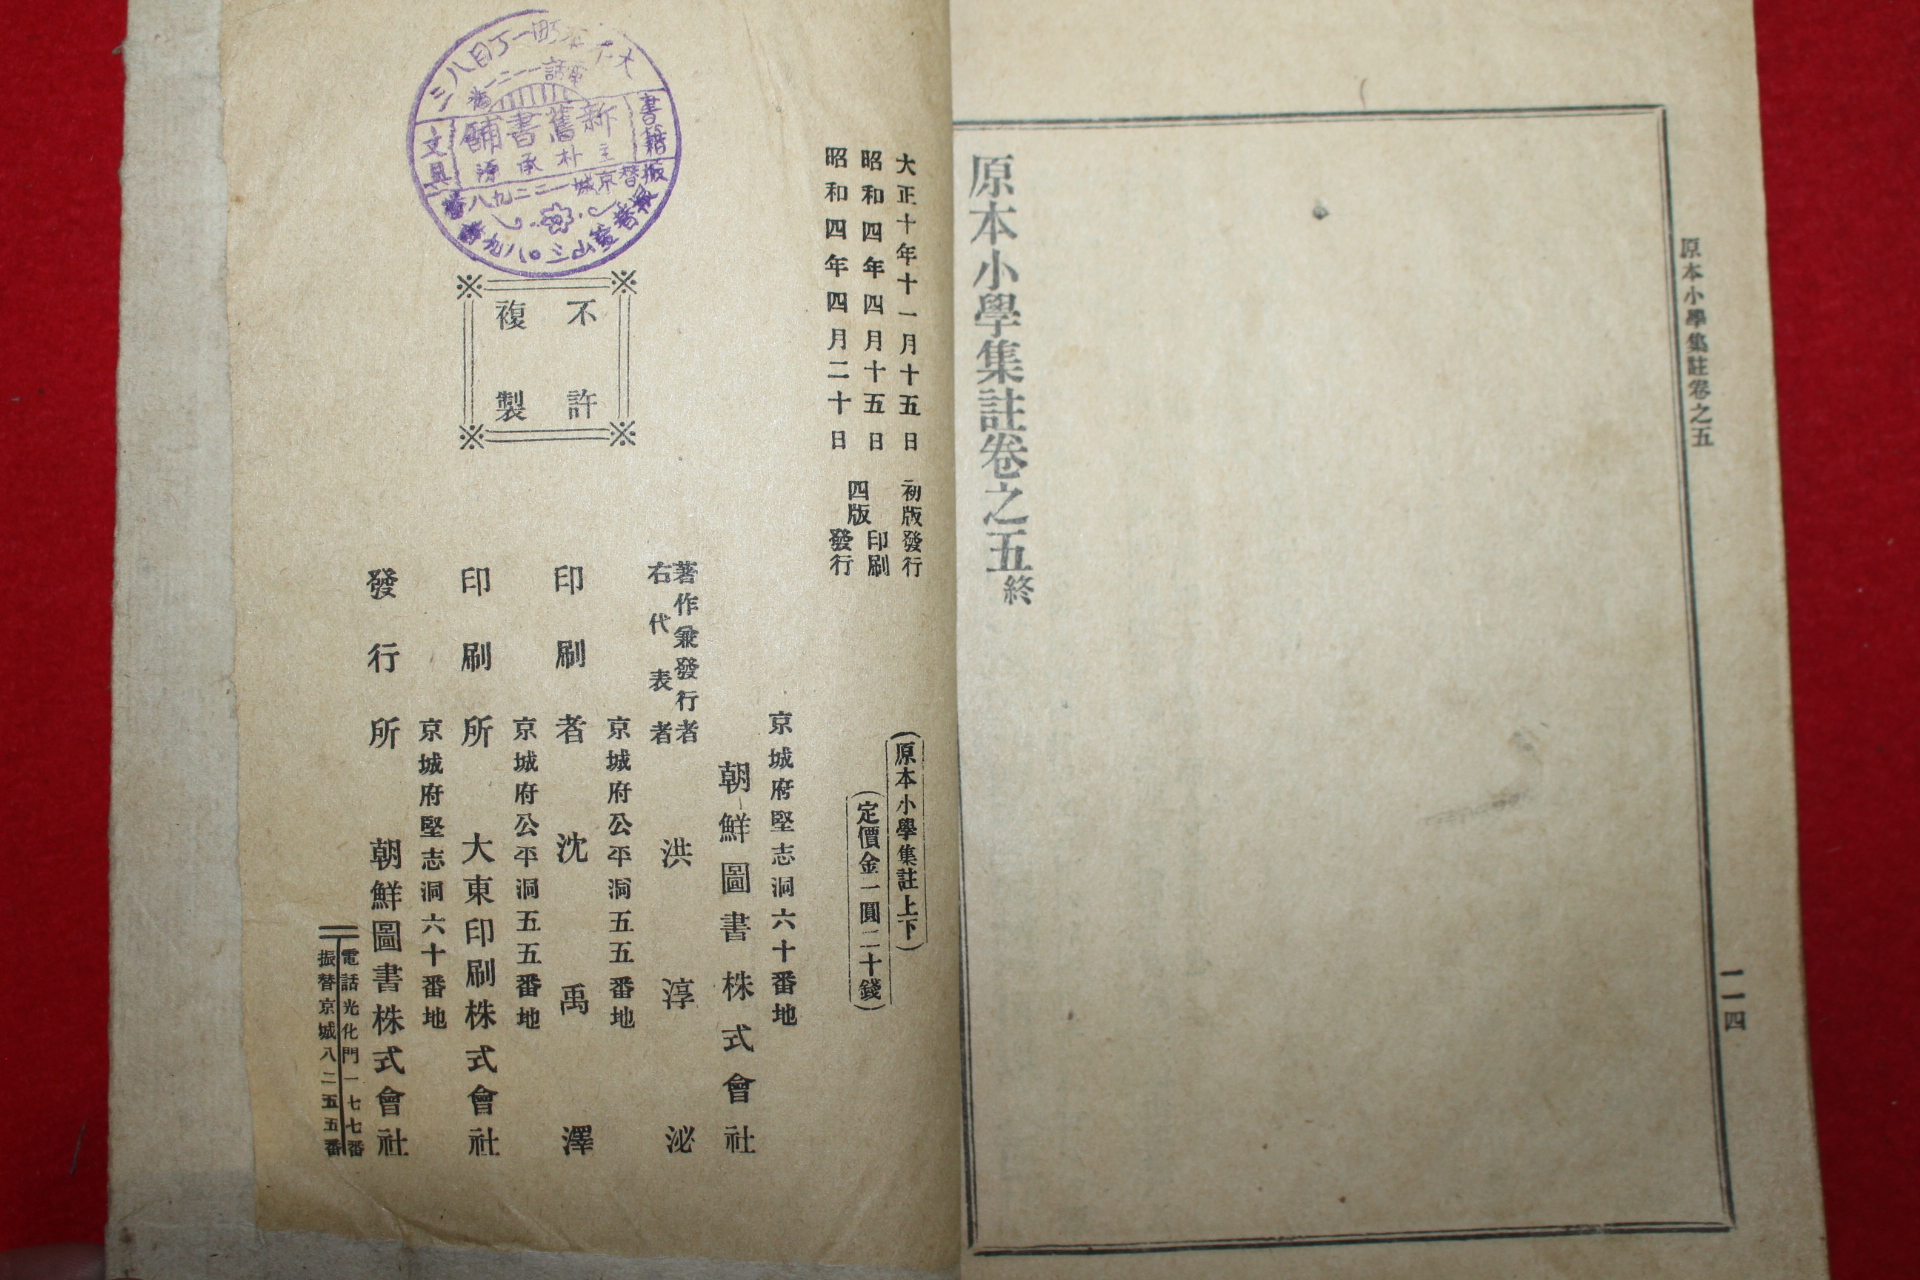 原本小學集註卷之五
一一四
原本小學集註卷之五終
大正十年十一月十五日 初版發行
昭和四年四月十五日 四版印刷
昭和四年四月二十日 四版發行
(原本小學集註上下)
(定價金一圓二十錢)
不許
複製
京城府堅志洞六十番地
著作兼發行者 朝鮮圖書株式會社
右代表者 洪淳泌
京城府公平洞五五番地
印刷者 沈禹澤
京城府公平洞五五番地
印刷所 大東印刷株式會社
京城府堅志洞六十番地
發行所 朝鮮圖書株式會社
電話光化門一七七番
振替京城八二五五番
町一丁目八三
書籍
新舊書鋪
主 朴承源
文具
振替京城一二二九八番
振替釜山三〇八九番